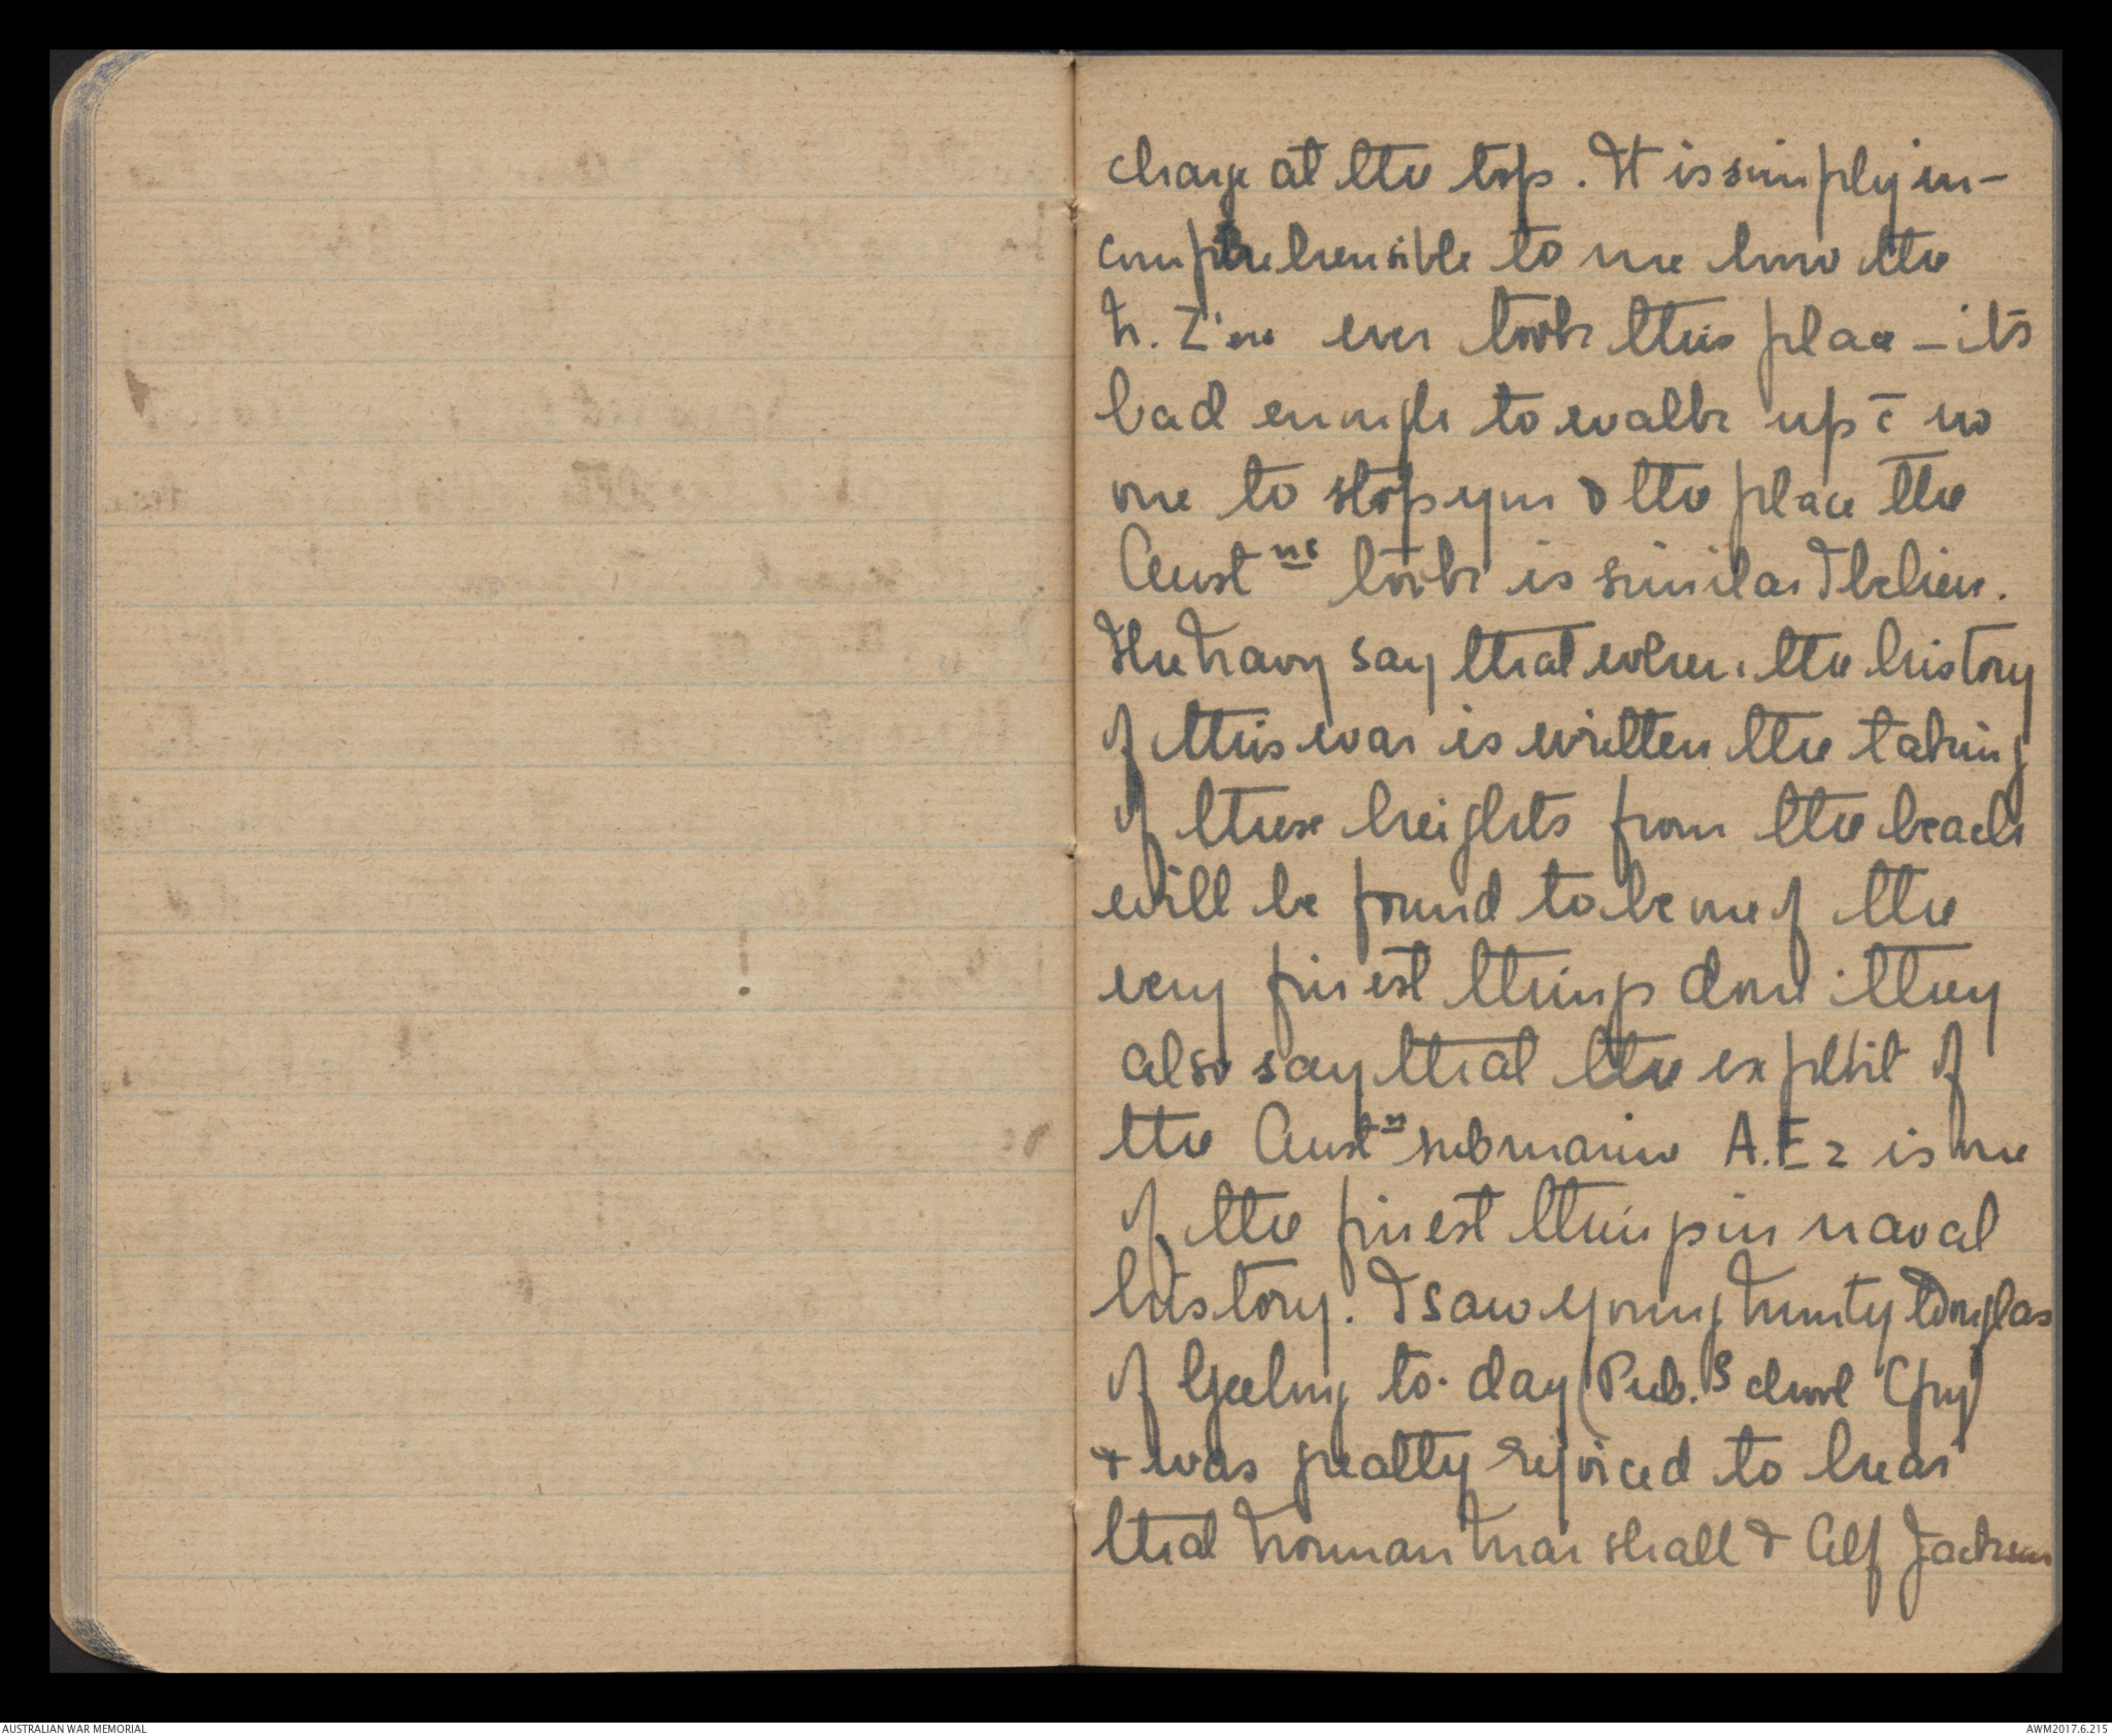 charge at the top. It is simply in-
comprehensible to me how the
N. Z'ers ever took this place – its
bad enough to walk up c̄ no
one to stop you & the place the
Austns took is similar I believe.
The Navy say that when the history
of this war is written the taking
of these heights from the beach
will be found to be one of the
very finest things done : they
also say that the exploit of
the Austn submarine A.E2 is one
of the finest things in naval
history. I saw young Douglas
of Geelong to-day (Pub. School Coy)
& was greatly rejoiced to hear
that Norman Marshall & Alf Jackson
AUSTRALIAN WAR MEMORIAL
AWM2017.6.215